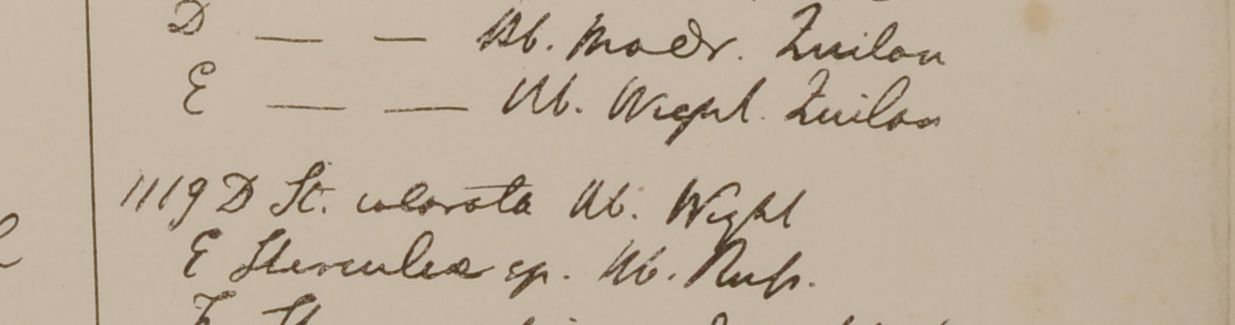 D — — Hb. Madr. Zeilan
E — — Hb. Wight. Zeilan
1119 D St. colorata Hb. Wight
E Sterculia sp. Hb. Russ.
F